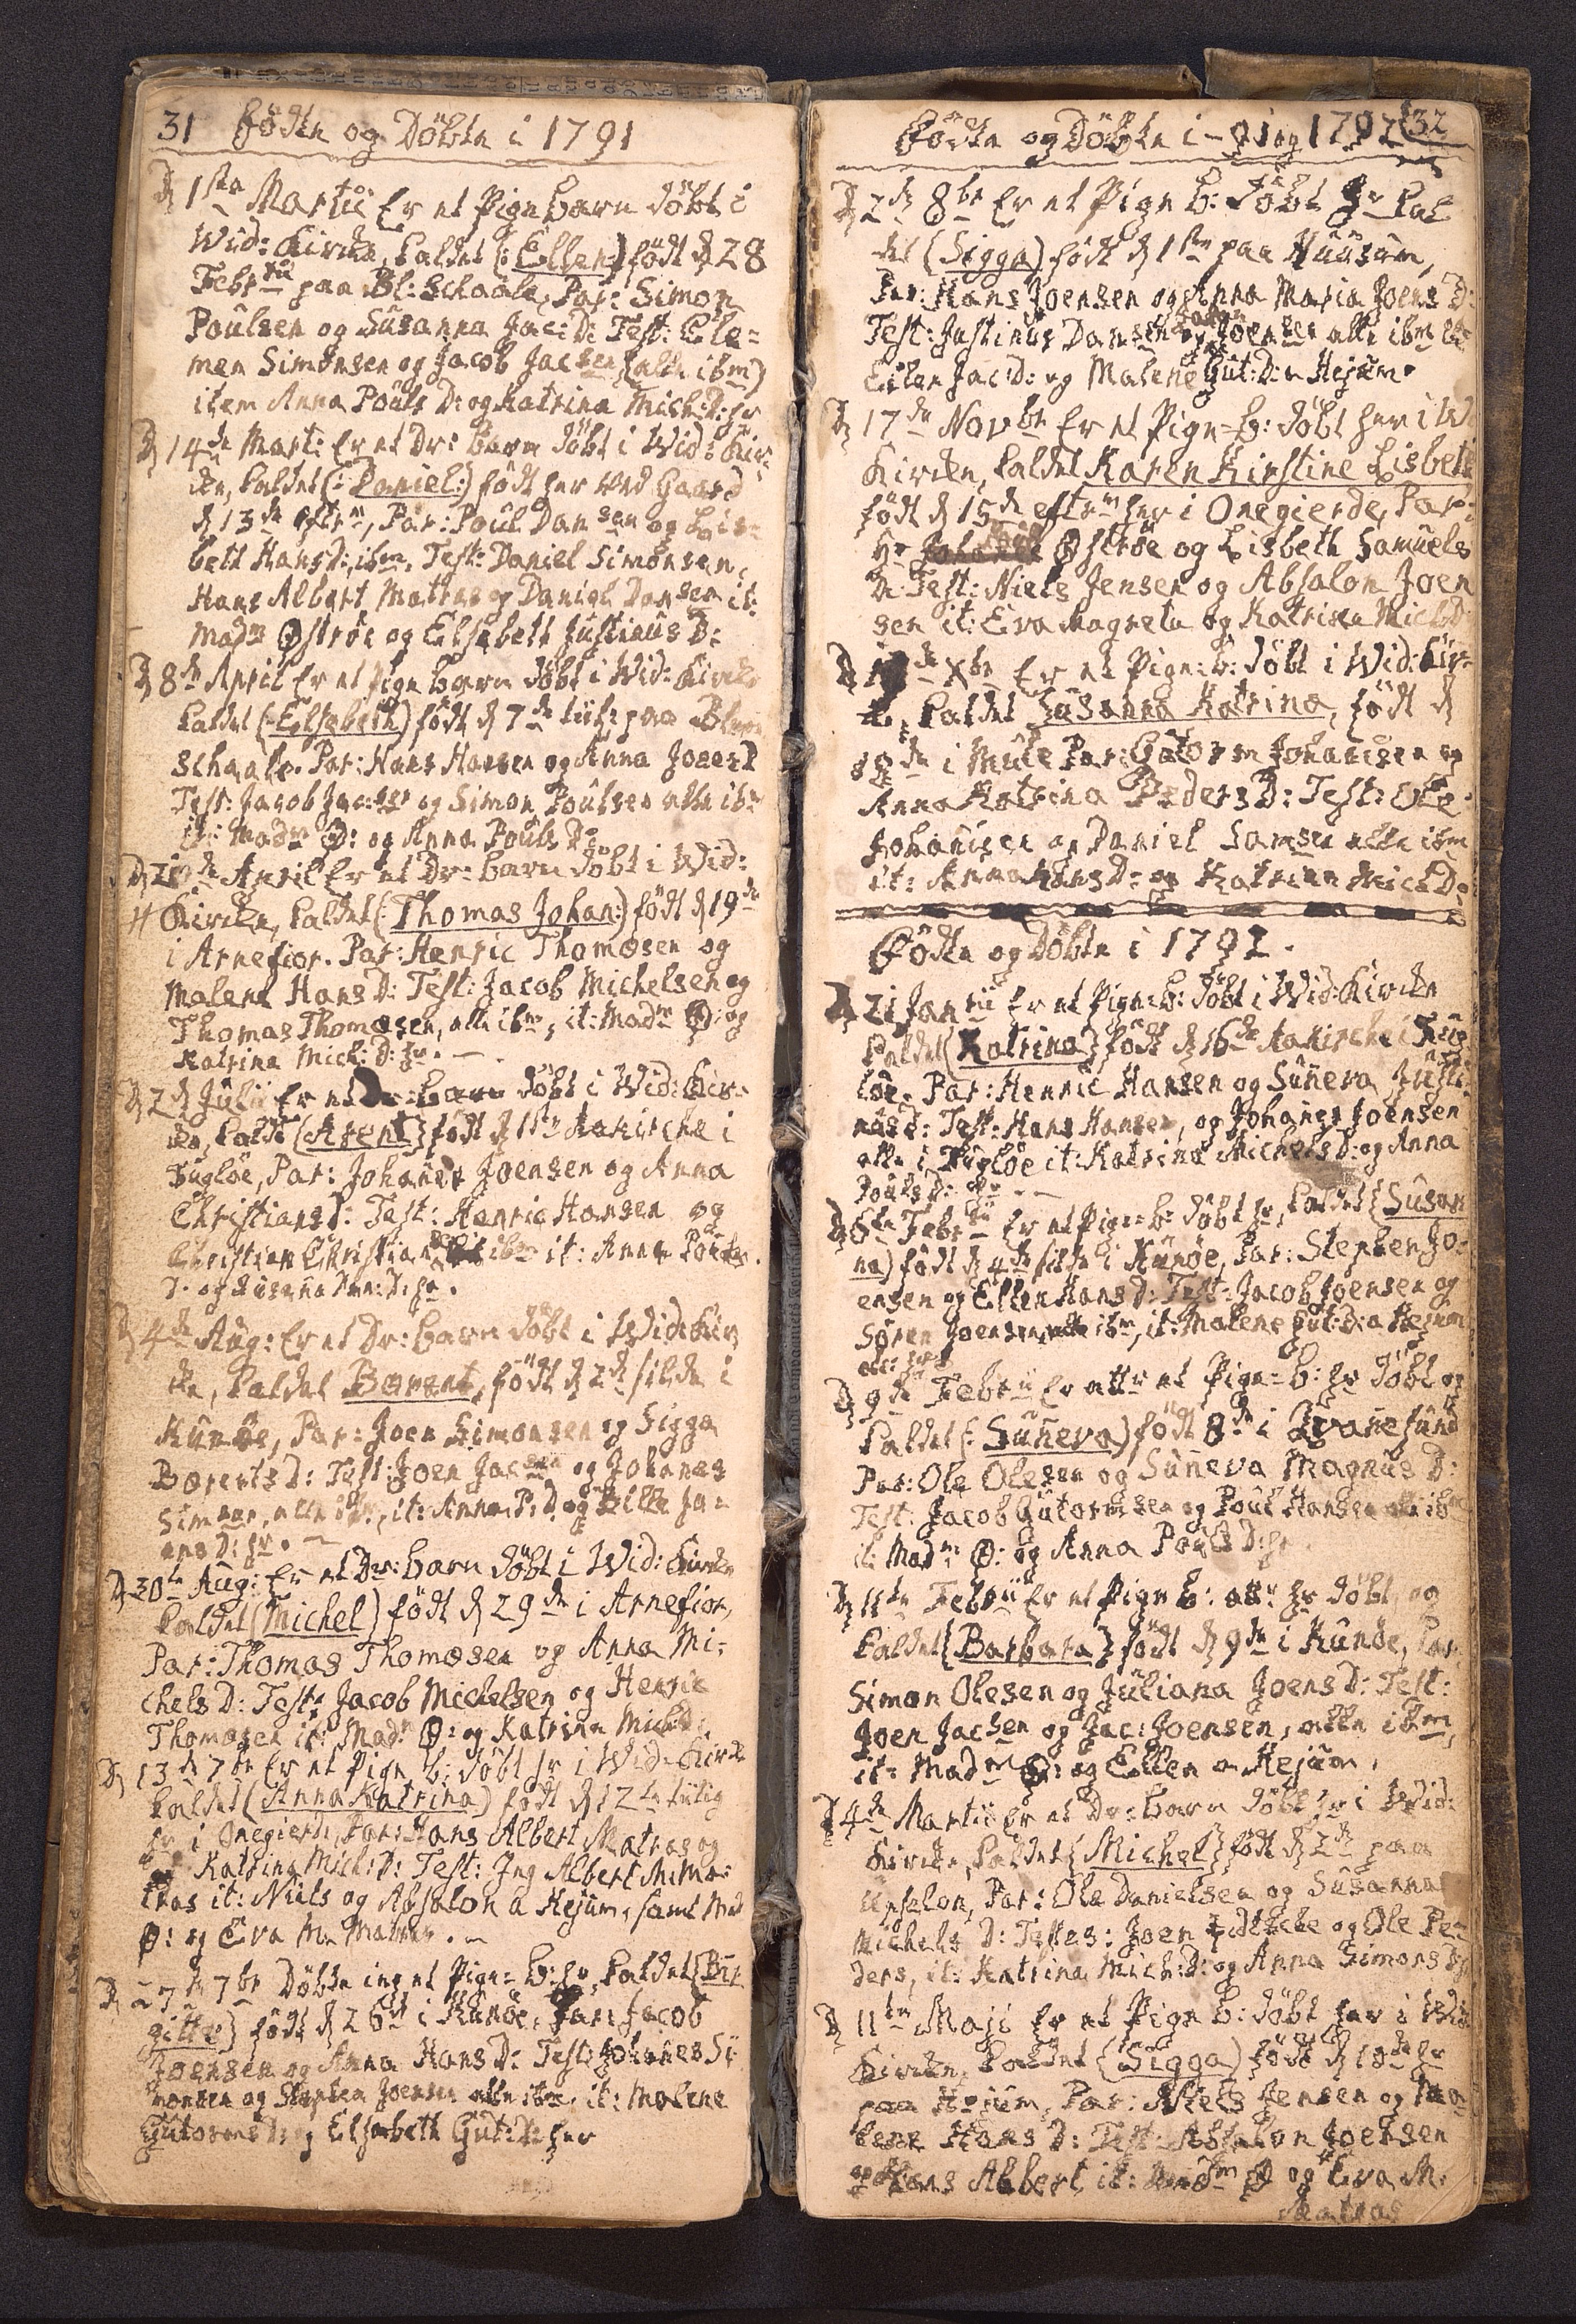 31 Födte og Döbte i 1791
D 1ste Martii Er et Pige barn döbt i
Wid: Kircke, kaldet (: Ellen :) födt d 28
Febr: paa Bl: Schaale, Par: Simon
Poulsen og Susanna Jac: D: Test: Cle=
men Simonsen og Jacob Jacsen (alle ibm)
item Anna Pouls D: og Katrina Mich: D: hr
D 14de Mart: Er et Dr: Barn döbt i Wid: Kir=
cke, kaldet (: Daniel :) födt her ved Gaard
d 13de eftrm, Par: Poul Dansen og Lis=
beth Hans d: ibm, Test: Daniel Simonsen,
Hans Albert Mattras og Daniel Dansen it:
Madm Öströe og Elsebeth Justinus D:
D 8de April Er et Pige barn döbt i Wid: Kircke
kaldet (: Elsebeth) födt d 7de paa Blan
schaale. Par: Hans Hansen og Anna Joens D
Test: Jacob Jacsen og Simon Poulsen alle ibm
it: Madm Ö: og Anna Pouls D:
D April Er et Dr: barn döbt i Wid:
Kircke, kaldet (: Thomas Johan :) födt d 19de
i Arnefior. Par: Henric Thomæsen og
Malene Hans D: Test: Jacob Michelsen og
Thomas Thomæsen, alle ibm, it: Madm Ö: og
Katrina Mich: D: hr. —
D 2d Julii Er et Dr: barn döbt i Wid: Kir=
cke, kaldt (Arent) födt d 1ste Aakircke i
Fugloe, Par: Johanes Joensen og Anna
Christians d: Test: Henric Hansen og
Christian Christian ibm it: Anna Pouls
D. og Susanna D: hr.
D 4de Aug: Er et Dr: barn döbt i Wid: Kir
cke, kaldet Bærent, födt d 2d silde i
Kunöe, Par: Joen Simonsen og Sigga
Bærents D: Test: Joen Jacsen og Johanes
Simsen, alle ibm, it: Anna P: D og Elle Jo=
ens D: hr. —
D 30te Aug: Er et Dr: barn döbt i Wid: Kircke
kaldet (Michel) födt d 29de i Arnefior,
Par: Thomas Thomæsen og Anna Mi=
chels D: Test: Jacob Michelsen og Henric
Thomæsen it: Madm Ö: og Katrina Mich: d:
D 13d 7br Er et Pige b: döbt hr i Wid: Kircke
kaldet (Anna Katrina) födt d 12te tiilig
hr i Onegierde, Par: Hans Albert Matras og
Katrina Mich: D: Test: Jng Albert M: Ma=
tras it: Niels og Absalon a Hejum, samt Mad
Ö: og Eva M: Matras. —
D 27d 7br Döbte jeg et Pige= b: hr, kaldet (Bir
gitte) födt d 26d i Kunöe, Par: Jacob
Joensen og Anna Hans D: Test: Johanes Si=
monsen og Stephen Joensen alle ibm, it: Malene
Gutorms D: og Elsebeth Gut: D: her
Födte og Döbte i -91 og 1792 32
D 2d 8br Er et Pige b: döbt hr kal
det (Sigga) födt d 1ste paa Huusum,
Par: Hans Joensen og Anna Maria Joens D:
Test: Justinus Dansen og Joensen alle ibm
Ellen Jac: D: og Malene Gut: D: a Hejum.
D 17de Novbr Er et Pige= b: döbt her i W
Kircken, kaldet Karen Kirstine Lisbeth
födt d 15de eftrm her i Onegierde, Par:
Hr Öströe og Lisbeth Samuels
D: Test: Niels Jensen og Absalon Joen
sen it: Eva Magreta og Katrina Mich D
D Xbr Er et Pige: b: döbt i Wid: Kir=
ke, kaldet Susanna Katrina, födt d
de i Mule Par: Gutorm Johanisen og
Anna Katrina Peders D: Test: Ole
Johanisen og Daniel Samsen alle ibm
it: Anna Hans D: og Katrina Mich D:
Födte og Döbte i 1792.
D 21 Janrii Er et Pige: b: döbt i Wid: Kircke
kaldet (Katrina) födt d 16de Aakircke i Fug
löe. Par: Henric Hansen og Suneva Justi
nus d: Test: Hans Hansen, og Johanes Joensen
alle i Fuglöe it: Katrina Michels D: og Anna
Pouls D: hr. —
D 6te Febr Er et Pige= b: döbt hr, kaldet (Susan
na) födt d 4de silde i Kunöe, Par: Stephen Jo=
ensen og Ellen Hans D: Test: Jacob Joensen og
Sören Joensen, alle ibm, it: Malene Gut: D: a Hejum
D 9de Febr Er attr et Pige= b: hr döbt og
kaldet (: Suneva) födt 8de i Qvanesund
Par: Ole Olesen og Suneva Magnus D:
Test: Jacob Gutormsen og Poul Hansen alle ibm
it: Madm: Ö: og Anna Pouls D: hr.
D 11te Febr Er et Pige b: attr hr döbt og
kaldet (Barbara) födt d 9de i Kunöe, Par:
Simon Olesen og Juliana Joens D: Test:
Joen Jacsen og Jac: Joensen, alle ibm,
it: Madm Ö: og Ellen a Hejum,
D 4de Martii Er et Dr: barn döbt hr i Wid:
Kircke, kaldet (Michel) födt d 2de paa
Upsalon, Par: Ole Danielsen og Susanna
Michels D: Testes: Joen og Ole Pe=
ders, it: Katrina Mich: D: og Anna Simons D:
D 11te Maji Er et Pige b: döbt her i Wid
Kircke, kaldet (Sigga) födt d 10de hr
paa Hejum, Par: Niels Jensen og Ma=
lene Hans D: Test: Absalon Joensen
og Hans Albert, it: Madm Ö og Eva M:
Matras